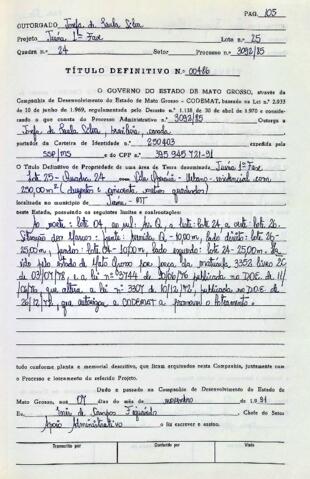 PAG. 105
OUTORGADO Josefa de Paula Silva
Projeto Juína 1ª Fase Lote n.º 25
Quadra n.º 24 Setor Processo n.º 3092/85
TÍTULO DEFINITIVO N.º 00486
O GOVERNO DO ESTADO DE MATO GROSSO, através da
Companhia de Desenvolvimento do Estado de Mato Grosso - CODEMAT, baseado na Lei n.º 2.033
de 10 de junho de 1969, regulamentada pelo Decreto n.º 1.138 de 30 de abril de 1970 e considerando
o que consta do Processo Administrativo n.º 3092/85 Outorga a
Josefa de Paula Silva, brasileira, casada
portador da Carteira de Identidade n.º 250403 expedida pelo
SSP/MS e do CPF n.º 395 945 721-91
O Título Definitivo de Propriedade de uma área de Terra denominada Juína 1ª Fase
Lote 25 - Quadra 24 Urbano - residencial com
250,00 m² (duzentos e cinquenta metros quadrados)
localizada no município de Juína - MT
neste Estado, possuindo os seguintes limites e confrontações:
ao norte: lote 04, ao sul: Q, a leste: lote 24, a oeste: lote 26.
frente: 10,00m, lado direito: lote 26-
25,00m, fundos: lote 04 - 10,00m, lado esquerdo: lote 24 - 25,00m.
pelo Estado de Mato Grosso por força da matrícula 3352 livro 2
de 03/07/78, e a lei nº 3744 de 10/06/76 publicada no D.O.E. de 11/
06/76, que altera a lei nº 3307 de 10/12/72, publicada no D.O.E. de
26/12/72, que autoriza a CODEMAT a promover o loteamento.
tudo conforme planta e memorial descritivo, que ficam arquivados nesta Companhia, juntamente com
o Processo e loteamento do referido Projeto.
Dado e passado na Companhia de Desenvolvimento do Estado de
Mato Grosso, aos 07 dias do mês de novembro de 1991
Eu, Inês de Campos Figueiredo Chefe do Setor
Apoio Administrativo o fiz escrever e assino.
Transcrito por Conferido por Visto